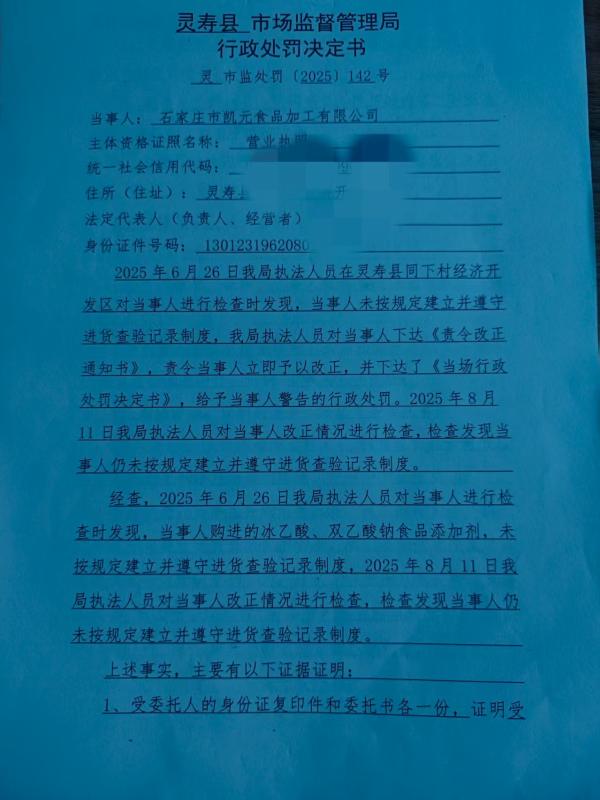 灵寿县 市场监督管理局
行政处罚决定书
灵 市监处罚〔2025〕142 号
当事人： 石家庄市凯元食品加工有限公司
主体资格证照名称： 营业执照
统一社会信用代码：
住所（住址）： 灵寿县 开
法定代表人（负责人、经营者）
身份证件号码： 1301231962080
2025 年 6 月 26 日我局执法人员在灵寿县同下村经济开
发区对当事人进行检查时发现，当事人未按规定建立并遵守
进货查验记录制度，我局执法人员对当事人下达《责令改正
通知书》，责令当事人立即予以改正，并下达了《当场行政
处罚决定书》，给予当事人警告的行政处罚。2025 年 8 月
11 日我局执法人员对当事人改正情况进行检查，检查发现当
事人仍未按规定建立并遵守进货查验记录制度。
经查，2025 年 6 月 26 日我局执法人员对当事人进行检
查时发现，当事人购进的冰乙酸、双乙酸钠食品添加剂，未
按规定建立并遵守进货查验记录制度，2025 年 8 月 11 日我
局执法人员对当事人改正情况进行检查，检查发现当事人仍
未按规定建立并遵守进货查验记录制度。
上述事实，主要有以下证据证明：
1、受委托人的身份证复印件和委托书各一份，证明受